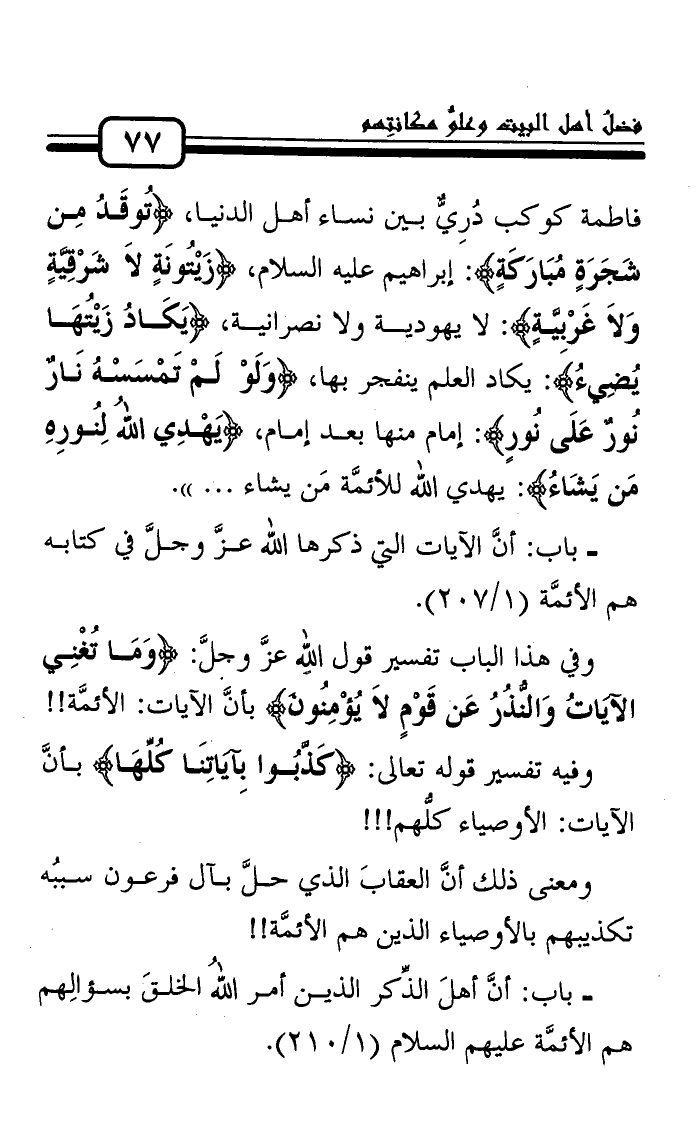 فضلُ أهل البيت وعلوُّ مكانتِهم
٧٧
فاطمة كوكب دُرِيٌّ بين نساء أهل الدنيا، ﴿تُوقَدُ مِن
شَجَرَةٍ مُبَارَكَةٍ﴾: إبراهيم عليه السلام، ﴿زَيْتُونَةٍ لاَ شَرْقِيَّةٍ
وَلاَ غَرْبِيَّةٍ﴾: لا يهودية ولا نصرانية، ﴿يَكَادُ زَيْتُهَا
يُضِيءُ﴾: يكاد العلم ينفجر بها، ﴿وَلَوْ لَمْ تَمْسَسْهُ نَارٌ
نُورٌ عَلَى نُورٍ﴾: إمام منها بعد إمام، ﴿يَهْدِي اللهُ لِنُورِهِ
مَن يَشَاءُ﴾: يهدي الله للأئمَّة مَن يشاء ... )).
ـ باب: أنَّ الآيات التي ذكرها الله عزَّ وجلَّ في كتابه
هم الأئمَّة (٢٠٧/١).
وفي هذا الباب تفسير قول اللهِ عزَّ وجلَّ: ﴿وَمَا تُغْنِي
الآيَاتُ وَالنُّذُرُ عَن قَوْمٍ لاَ يُؤْمِنُونَ﴾ بأنَّ الآيات: الأئمَّة!!
وفيه تفسير قوله تعالى: ﴿كَذَّبُوا بِآيَاتِنَا كُلِّهَا﴾ بأنَّ
الآيات: الأوصياء كلُّهم!!!
ومعنى ذلك أنَّ العقابَ الذي حلَّ بآل فرعون سببُه
تكذيبهم بالأوصياء الذين هم الأئمَّة!!
ـ باب: أنَّ أهلَ الذِّكر الذين أمر اللهُ الخلقَ بسؤالِهم
هم الأئمَّة عليهم السلام (٢١٠/١).